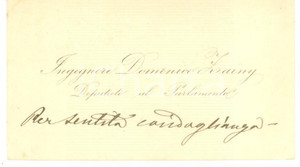 Ingegnere Domenico Zeuiny
Deputato al Parlamento
Per sentita condoglianza